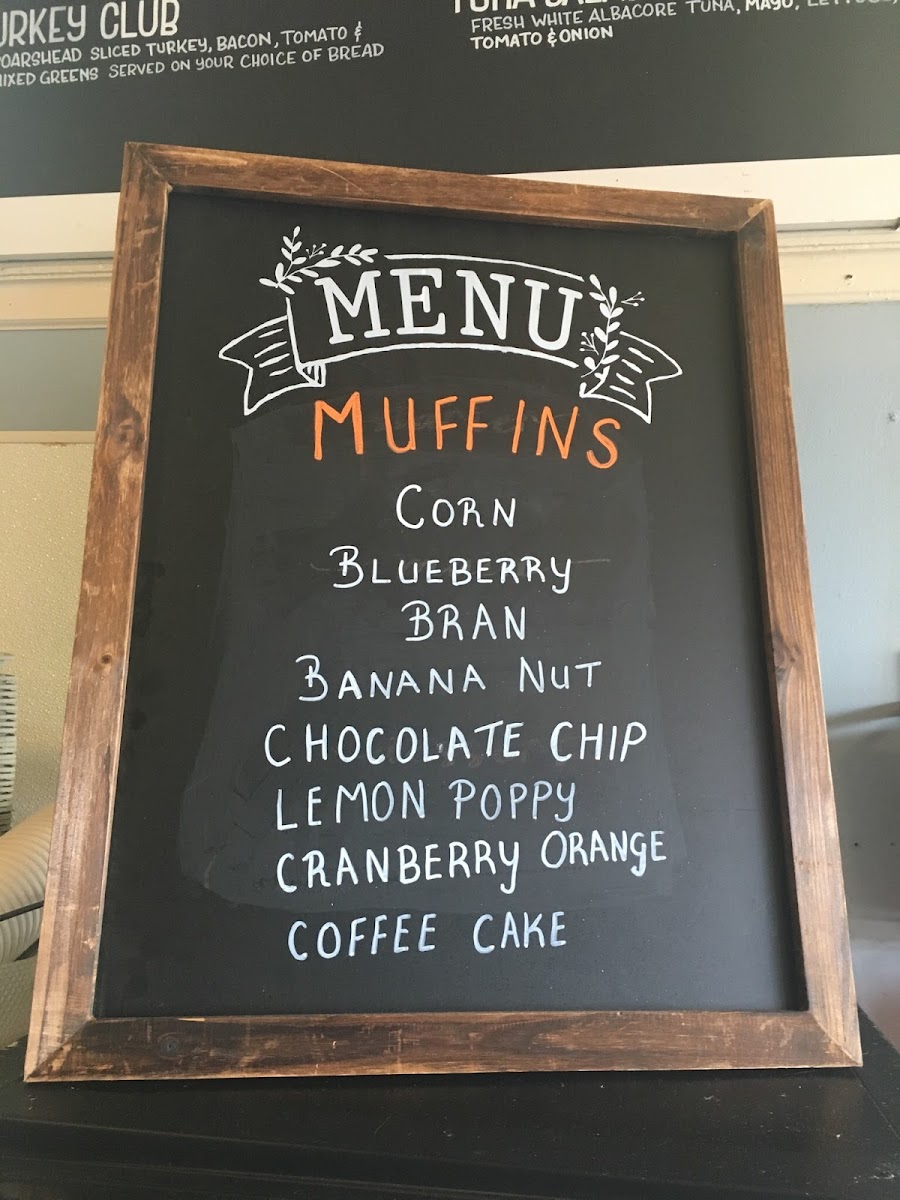 URKEY CLUB
OARSHEAD SLICED TURKEY, BACON, TOMATO &
MIXED GREENS SERVED ON YOUR CHOICE OF BREAD
TUNA
FRESH WHITE ALBACORE TUNA, MAYO, LETTUCE,
TOMATO & ONION
MENU
MUFFINS
CORN
BLUEBERRY
BRAN
BANANA NUT
CHOCOLATE CHIP
LEMON POPPY
CRANBERRY ORANGE
COFFEE CAKE